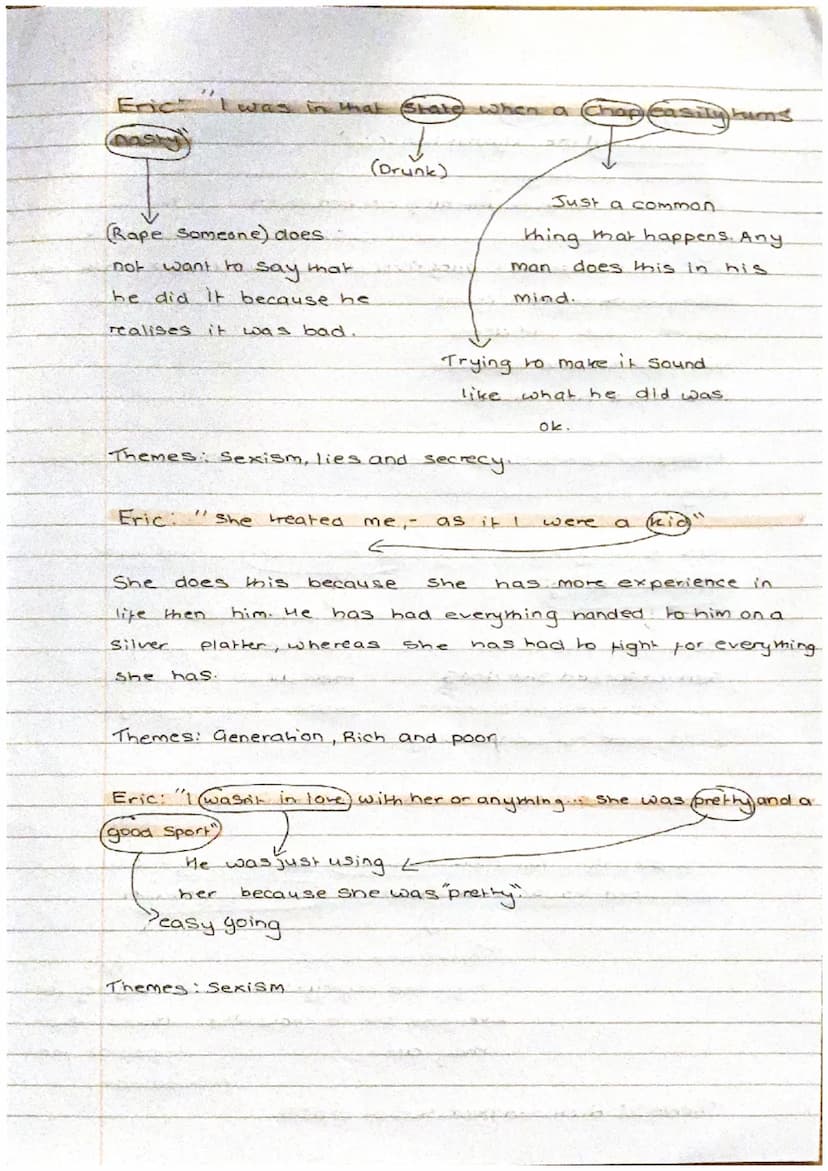 Eric: "I was in that state when a chap easily turns
nasty"
(Drunk)
Just a common
thing that happens. Any
man does this in his
mind.
(Rape someone) does
not want to say that
he did it because he
realises it was bad.
Trying to make it sound
like what he did was
ok.
Themes: Sexism, lies and secrecy.
Eric: "She treated me,- as if I were a kid"
She does this because she has more experience in
life then him. He has had everything handed to him on a
silver platter, whereas she has had to fight for everything
she has.
Themes: Generation, Rich and poor
Eric: "I wasn't in love with her or anything... she was pretty and a
good sport"
He was just using
her because she was "pretty".
easy going
Themes: Sexism